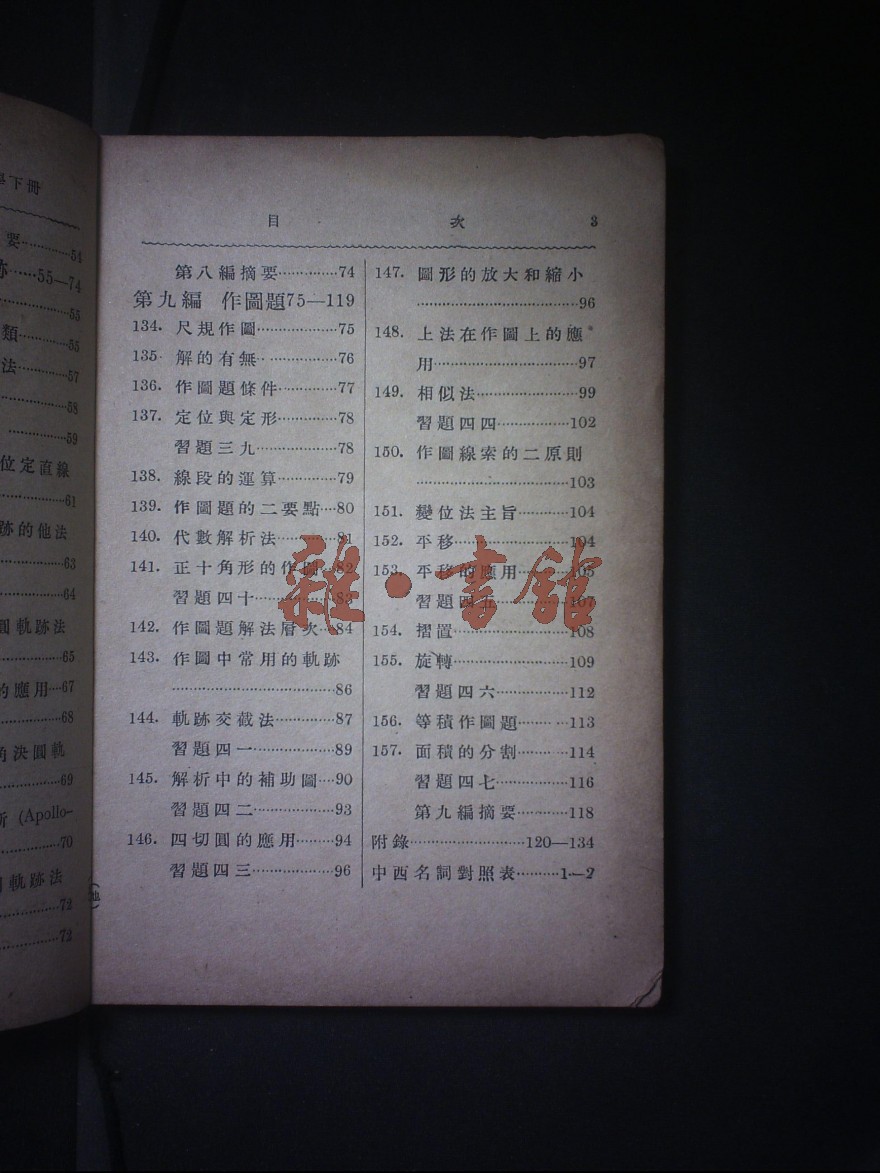 下冊
要……54
……55—74
……55
類……55
法……57
……58
……59
位定直線
……61
跡的他法
……63
……64
圓軌跡法
……65
的應用…67
……68
角決圓軌
……69
(Apollo-
……70
軌跡法
……72
……72
目 次 3
第八編摘要……74
第九編 作圖題75—119
134. 尺規作圖……75
135. 解的有無……76
136. 作圖題條件……77
137. 定位與定形……78
習題三九……78
138. 線段的運算……79
139. 作圖題的二要點…80
140. 代數解析法……81
141. 正十角形的作圖…82
習題四十……83
142. 作圖題解法層次…84
143. 作圖中常用的軌跡
……86
144. 軌跡交截法……87
習題四一……89
145. 解析中的補助圖…90
習題四二……93
146. 四切圓的應用……94
習題四三……96
147. 圖形的放大和縮小
……96
148. 上法在作圖上的應
用……97
149. 相似法……99
習題四四……102
150. 作圖線索的二原則
……103
151. 變位法主旨……104
152. 平移……104
153. 平移的應用……105
習題四五……107
154. 摺置……108
155. 旋轉……109
習題四六……112
156. 等積作圖題……113
157. 面積的分割……114
習題四七……116
第九編摘要……118
附錄……120—134
中西名詞對照表……1—2
雜·書館